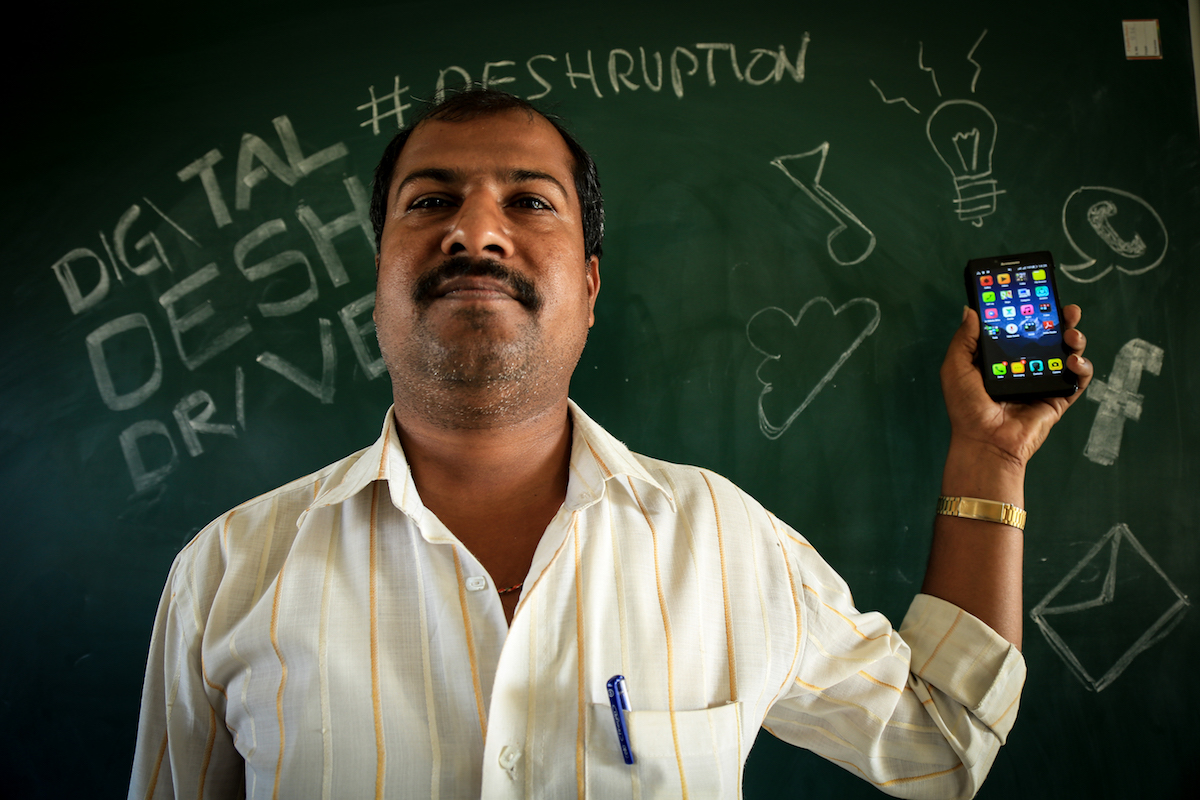 #DESHRUPTION
DIGITAL
DESH
DRIVE